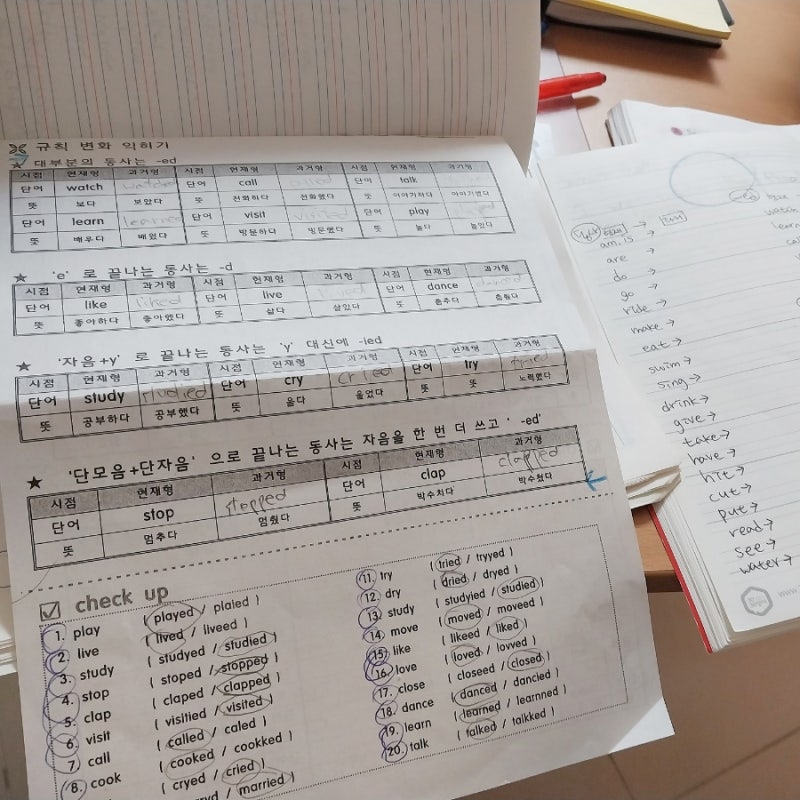 규칙 변화 익히기
★ 대부분의 동사는 -ed
시점 현재형 과거형 시점 현재형 과거형 시점 현재형 과거형
단어 watch watched 단어 call called 단어 talk
뜻 보다 보았다 뜻 전화하다 전화했다 뜻 이야기하다 이야기했다
단어 learn learned 단어 visit visited 단어 play
뜻 배우다 배웠다 뜻 방문하다 방문했다 뜻 놀다 놀았다
★ 'e' 로 끝나는 동사는 -d
시점 현재형 과거형 시점 현재형 과거형 시점 현재형 과거형
단어 like liked 단어 live lived 단어 dance danced
뜻 좋아하다 좋아했다 뜻 살다 살았다 뜻 춤추다 춤췄다
★ '자음+y' 로 끝나는 동사는 'y' 대신에 -ied
시점 현재형 과거형 시점 현재형 과거형 시점 현재형 과거형
단어 study studied 단어 cry cried 단어 try tried
뜻 공부하다 공부했다 뜻 울다 울었다 뜻 뜻 노력했다
★ '단모음+단자음' 으로 끝나는 동사는 자음을 한 번 더 쓰고 ' -ed'
시점 현재형 과거형 시점 현재형 과거형
단어 stop stopped 단어 clap clapped
뜻 멈추다 멈췄다 뜻 박수치다 박수쳤다
check up
1. play ( played / plaied )
2. live ( lived / liveed )
3. study ( studyed / studied )
4. stop ( stoped / stopped )
5. clap ( claped / clapped )
6. visit ( visitied / visited )
7. call ( called / caled )
8. cook ( cooked / cookked )
( cryed / cried )
married )
11. try ( tried / tryyed )
12. dry ( dried / dryed )
13. study ( studyied / studied )
14. move ( moved / moveed )
15. like ( likeed / liked )
16. love ( loved / lovved )
17. close ( closeed / closed )
18. dance ( danced / dancied )
19. learn ( learned / learnned )
20. talk ( talked / talkked )
am, is →
are →
do →
go →
ride →
make →
eat →
swim →
sing →
drink →
give →
take →
have →
hit →
cut →
put →
read →
see →
water →